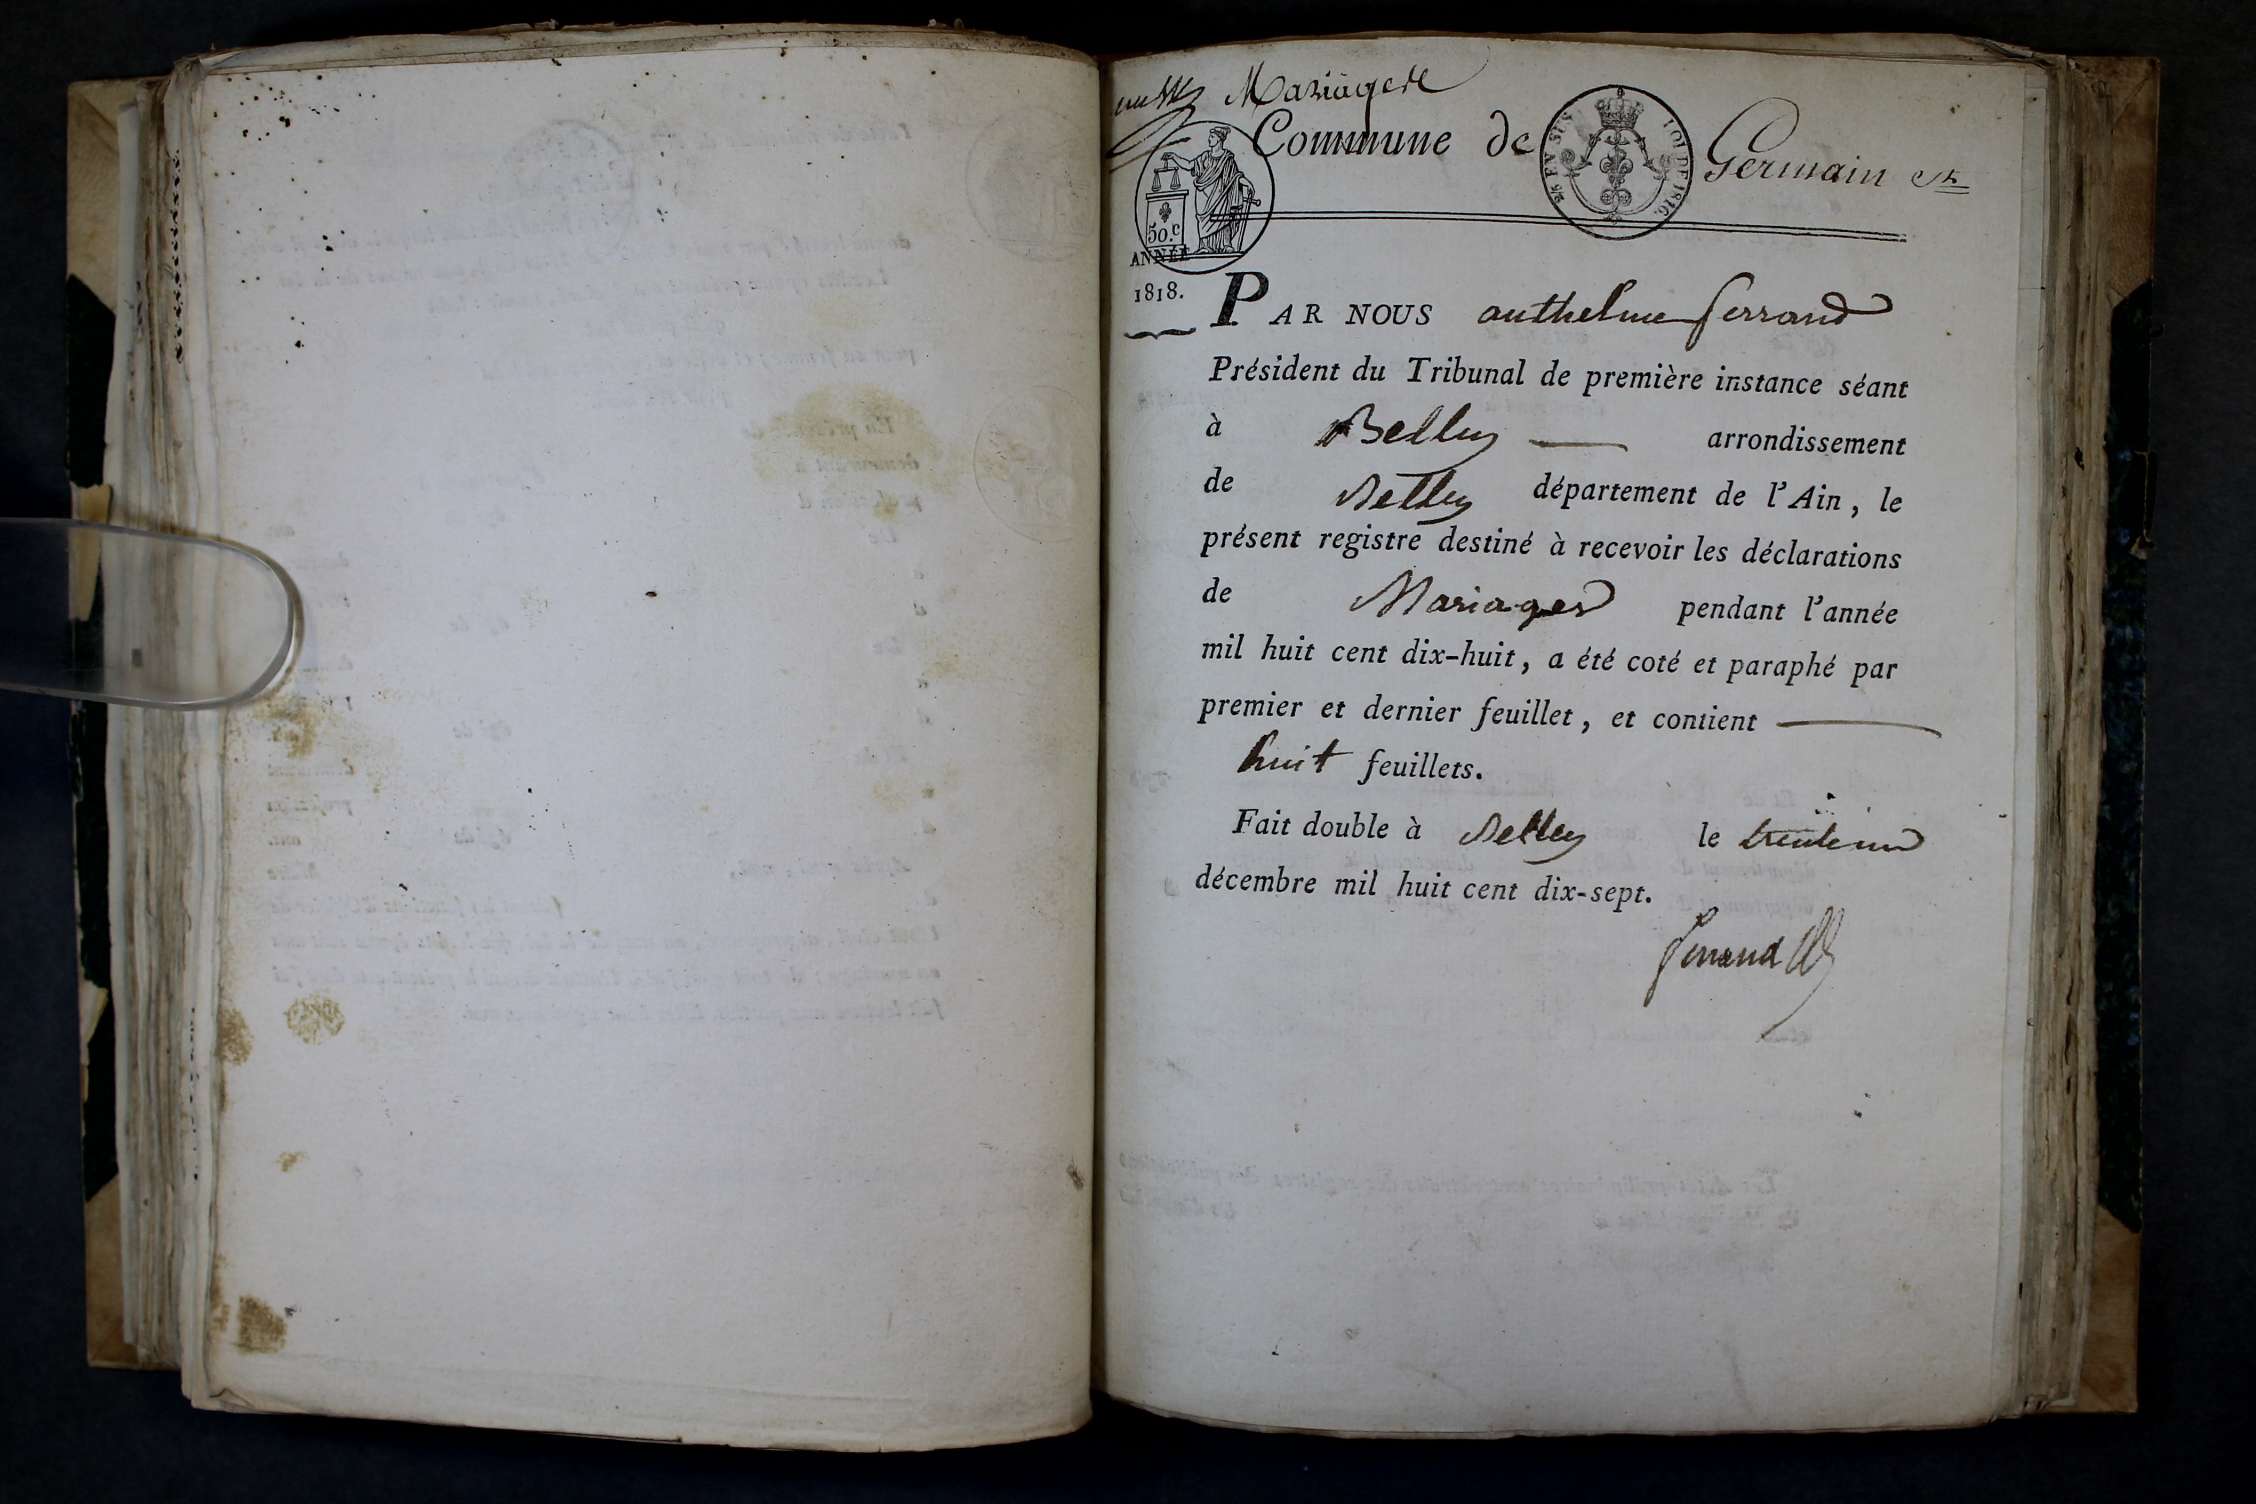 Mariages
Commune de Germain St
EN SUS
LOI DE 1816.
50.c
ANNÉE
1818.
PAR NOUS anthelme ferrand
Président du Tribunal de première instance séant
à Belley arrondissement
de Belley département de l'Ain, le
présent registre destiné à recevoir les déclarations
de Mariages pendant l'année
mil huit cent dix-huit, a été coté et paraphé par
premier et dernier feuillet, et contient
huit feuillets.
Fait double à Belley le trente un
décembre mil huit cent dix-sept.
ferrand